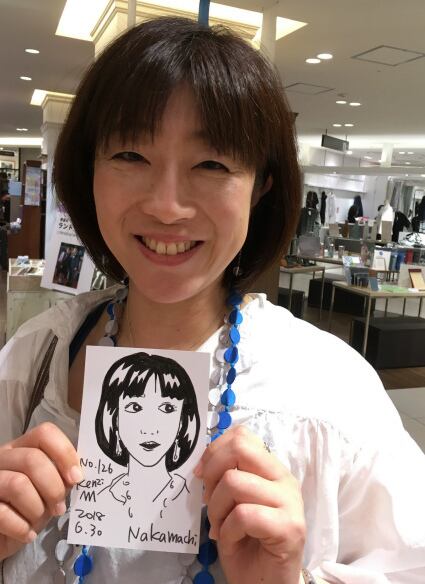 ランド
No.126
Kenzi
2018
6.30
Nakamachi